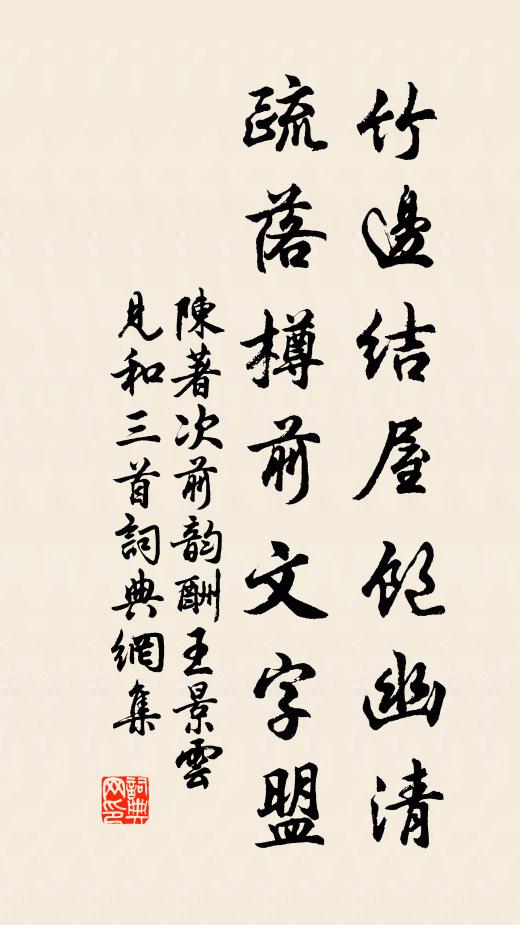 竹邊結屋飽幽清
疏落樽前文字盟
陳著次前韵酬王景雲
見和三首詞典網集
詞典
网印